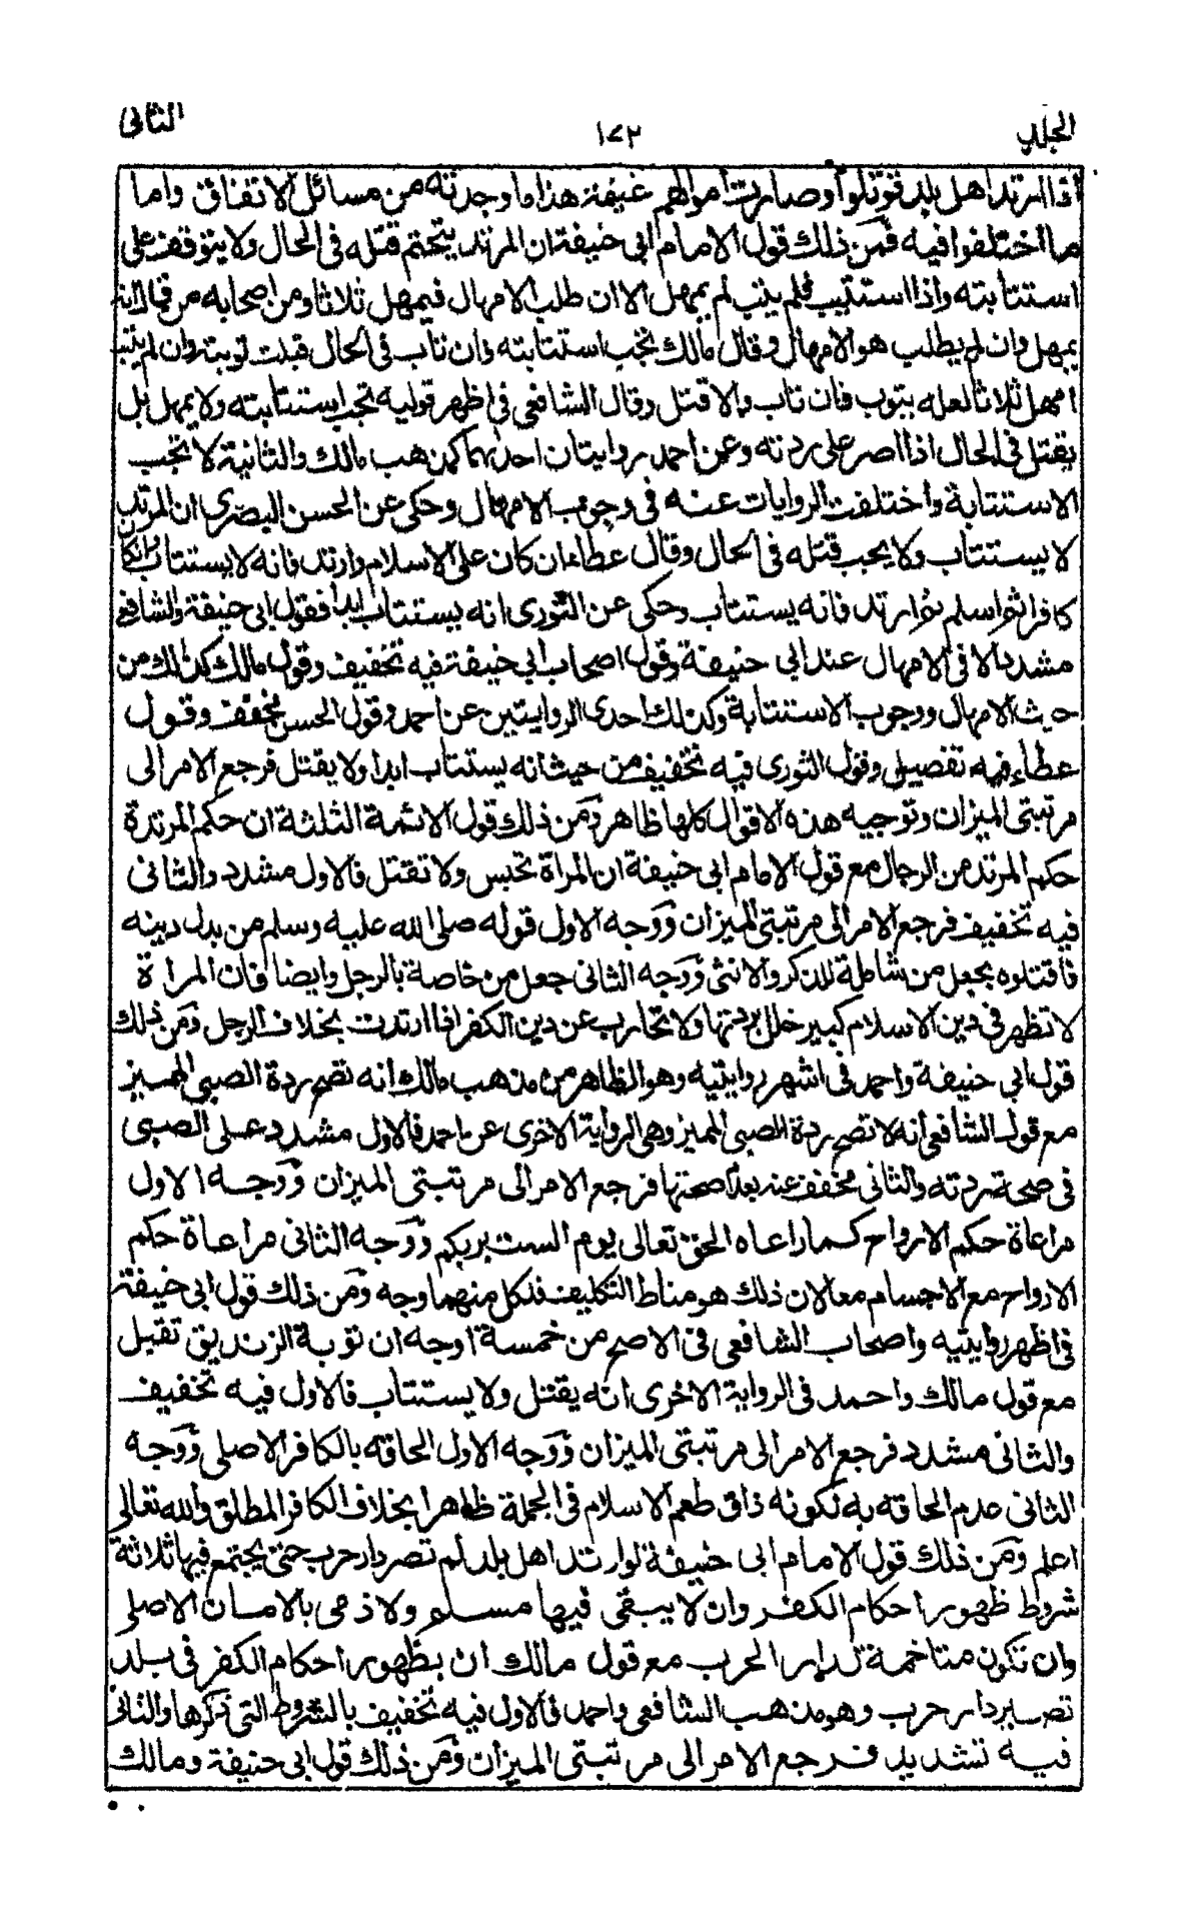 المجلد
١٧٢
الثانى
اذا ارتد اهل بلد قوتلوا وصارت اموالهم غنيمة هذا ما وجدته من مسائل الاتفاق واما
ما اختلفوا فيه فمن ذلك قول الامام ابى حنيفة ان المرتد يتحتم قتله فى الحال ولا يتوقف على
استتابته واذا استتيب فلم يتب لم يمهل الا ان طلب الامهال فيمهل ثلاثا ومن اصحابه من قال انه
يمهل وان لم يطلب هو الامهال وقال مالك تجب استتابته وان تاب فى الحال قبلت توبته وان لم يتب
امهل ثلاثا لعله يتوب فان تاب والا قتل وقال الشافعى فى اظهر قوليه تجب استتابته ولا يمهل بل
يقتل فى الحال اذا اصر على ردته وعن احمد روايتان احدهما كمذهب مالك والثانية لا تجب
الاستتابة واختلفت الروايات عنه فى وجوب الامهال وحكى عن الحسن البصرى ان المرتد
لا يستتاب ولا يجب قتله فى الحال وقال عطاء ان كان على الاسلام وارتد فانه لا يستتاب وان كان
كافرا ثم اسلم ثم ارتد فانه يستتاب وحكى عن الثورى انه يستتاب ابدا فقول ابى حنيفة والشافعى
مشدد الا فى الامهال عند ابى حنيفة وقول اصحاب ابى حنيفة فيه تخفيف وقول مالك كذلك من
حيث الامهال ووجوب الاستتابة وكذلك احدى الروايتين عن احمد وقول الحسن مخفف وقول
عطاء فيه تفصيل وقول الثورى فيه تخفيف من حيث انه يستتاب ابدا ولا يقتل فرجع الامر الى
مرتبتى الميزان وتوجيه هذه الاقوال كلها ظاهر ومن ذلك قول الائمة الثلثة ان حكم المرتدة
حكم المرتد من الرجال مع قول الامام ابى حنيفة ان المرأة تحبس ولا تقتل فالاول مشدد والثانى
فيه تخفيف فرجع الامر الى مرتبتى الميزان ووجه الاول قوله صلى الله عليه وسلم من بدل دينه
فاقتلوه بجعل من شاملة للذكر والانثى ووجه الثانى جعل من خاصة بالرجل وايضا فان المراة
لا تظهر فى دين الاسلام كبير خلل بردتها ولا تحارب عن دين الكفر اذا ارتدت بخلاف الرجل ومن ذلك
قول ابى حنيفة واحمد فى اشهر روايتيه وهو الظاهر من مذهب مالك انه تصح ردة الصبى المميز
مع قول الشافعى انه لا تصح ردة الصبى المميز وهى الرواية الاخرى عن احمد فالاول مشدد على الصبى
فى صحة ردته والثانى مخفف عنه بعدم صحتها فرجع الامر الى مرتبتى الميزان ووجه الاول
مراعاة حكم الارواح كما راعاه الحق تعالى يوم الست بربكم ووجه الثانى مراعاة حكم
الارواح مع الاجسام معا لان ذلك هو مناط التكليف فلكل منهما وجه ومن ذلك قول ابى حنيفة
فى اظهر روايتيه واصحاب الشافعى فى الاصح من خمسة اوجه ان توبة الزنديق تقبل
مع قول مالك واحمد فى الرواية الاخرى انه يقتل ولا يستتاب فالاول فيه تخفيف
والثانى مشدد فرجع الامر الى مرتبتى الميزان ووجه الاول الحاقه بالكافر الاصلى ووجه
الثانى عدم الحاقه به لكونه ذاق طعم الاسلام فى الجملة ظاهرا بخلاف الكافر المطلق والله تعالى
اعلم ومن ذلك قول الامام ابى حنيفة لو ارتد اهل بلد لم تصر دار حرب حتى يجتمع فيها ثلاثة
شروط ظهور احكام الكفر وان لا يبقى فيها مسلم ولا ذمى بالامان الاصلى
وان تكون متاخمة لدار الحرب مع قول مالك ان بظهور احكام الكفر فى بلد
تصير دار حرب وهو مذهب الشافعى واحمد فالاول فيه تخفيف بالشروط التى ذكرها والثانى
فيه تشديد فرجع الامر الى مرتبتى الميزان ومن ذلك قول ابى حنيفة ومالك